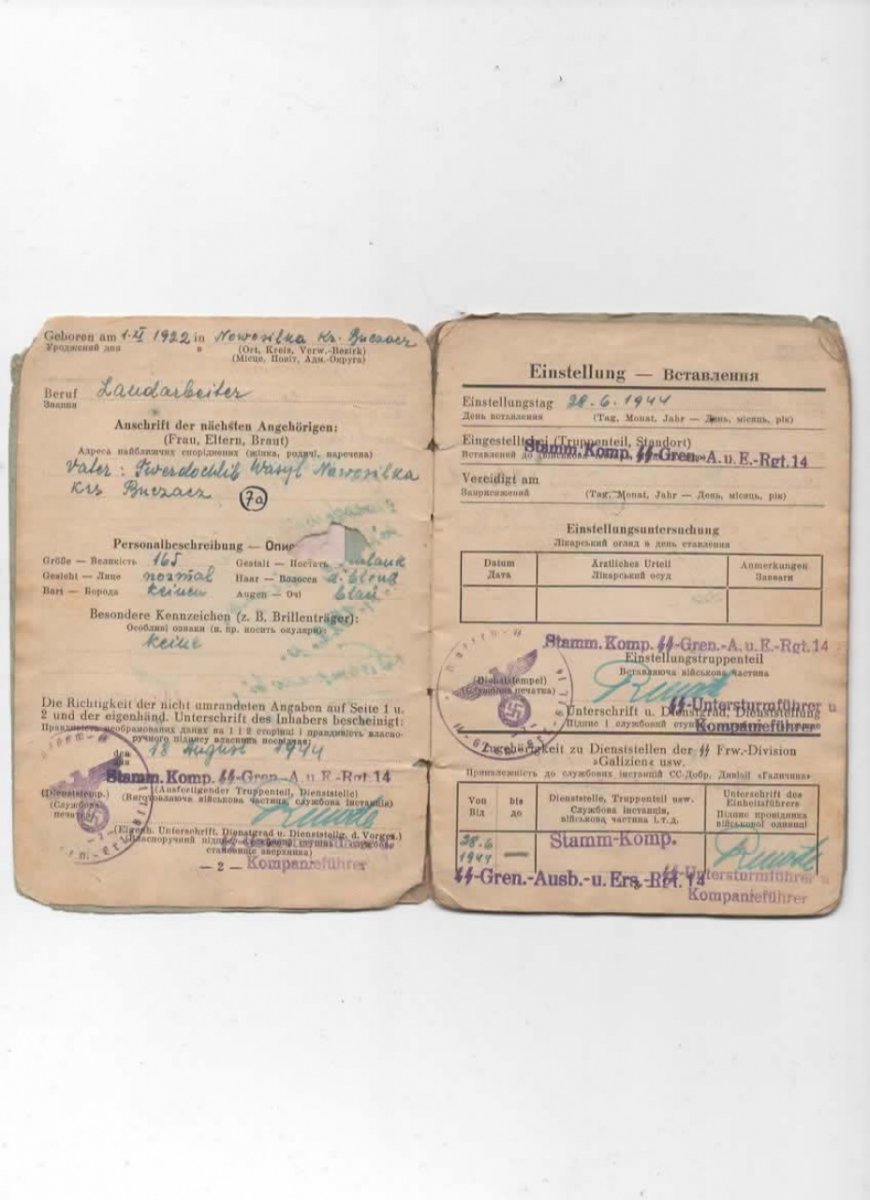 Geboren am 1.VI 1922 in Nowosilka Kr. Buczacz
Уроджений дня в (Ort, Kreis, Verw.-Bezirk)
(Місце, Повіт, Адм.-Округа)
Beruf Landarbeiter
Звання
Anschrift der nächsten Angehörigen:
(Frau, Eltern, Braut)
Адреса найближчих споріднених (жінка, родичі, наречена)
Vater: Twerdochlib Wasyl Nowosilka
Krs Buczacz 7a
Personalbeschreibung — Опис
Größe — Великість 165 Gestalt — Постать
Gesicht — Лице normal Haar — Волосся d. blond
Bart — Борода keinen Augen — Очі blau
Besondere Kennzeichen (z. B. Brillenträger):
Особливі ознаки (н. пр. носить окуляри):
keine
Die Richtigkeit der nicht umrandeten Angaben auf Seite 1 u.
2 und der eigenhänd. Unterschrift des Inhabers bescheinigt:
Правдивість необрамованих даних на 1 і 2 сторінці і правдивість власно-
ручного підпису власника посвідчає
den 18 August 1944
Stamm.Komp. SS-Gren.-A.u.E.-Rgt.14
(Dienststemp.) (Ausfertigender Truppenteil, Dienststelle)
(Службова печатка) (Виготовляюча військова частина, службова інстанція)
(Eigenh. Unterschrift, Dienstgrad u. Dienststellg. d. Vorges.)
становище зверхника)
Kompanieführer
— 2 —
Einstellung — Вставлення
Einstellungstag 28.6.1944
День вставлення (Tag, Monat, Jahr — День, місяць, рік)
Eingestellt bei (Truppenteil, Standort)
Stamm.Komp. SS-Gren.-A.u.E.-Rgt.14
Vereidigt am
Заприсяжений (Tag, Monat, Jahr — День, місяць, рік)
Einstellungsuntersuchung
Лікарський огляд в день вставлення
Datum Ärztliches Urteil Anmerkungen
Дата Лікарський осуд Завваги
Stamm.Komp. SS-Gren.-A.u.E.-Rgt.14
Einstellungstruppenteil
(Dienststempel) Вставляюча військова частина
(Службова печатка)
SS-Untersturmführer u
Unterschrift u. Dienstgrad, Dienststellung
Kompanieführer
Zugehörigkeit zu Dienststellen der SS Frw.-Division
»Galizien« usw.
Приналежність до службових інстанцій СС-Добр. Дивізії «Галичина»
Von bis Dienststelle, Truppenteil usw. Unterschrift des
Від до Службова інстанція, Einheitsführers
військова частина і.т.д. Підпис провідника
військової одиниці
28.6 1944 — Stamm-Komp.
SS-Gren.-Ausb.-u.Ers.-Rgt.14 SS-Untersturmführer u
Kompanieführer